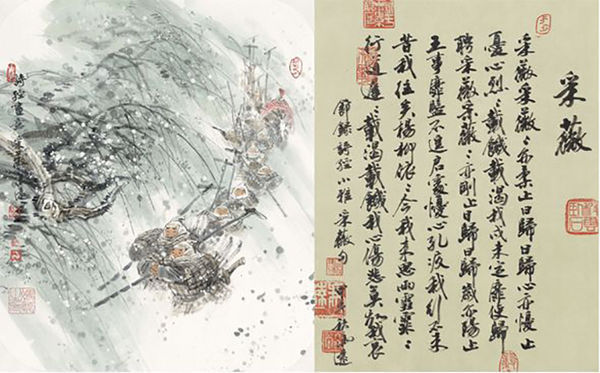 采薇
采薇采薇〻亦柔止曰歸曰歸心亦憂止
憂心烈〻載飢載渴我戍未定靡使歸
聘采薇采薇〻亦剛止曰歸曰歸歲亦陽止
王事靡盬不遑启處憂心孔疚我行不来
昔我往矣楊柳依〻今我来思雨雪霏〻
行道遲〻載渴載飢我心傷悲莫知我哀
節錄詩經小雅采薇句
詩經畫意采薇